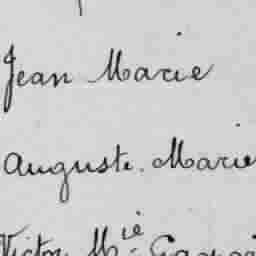 Jean Marie
Auguste. Marie
Victor Mie